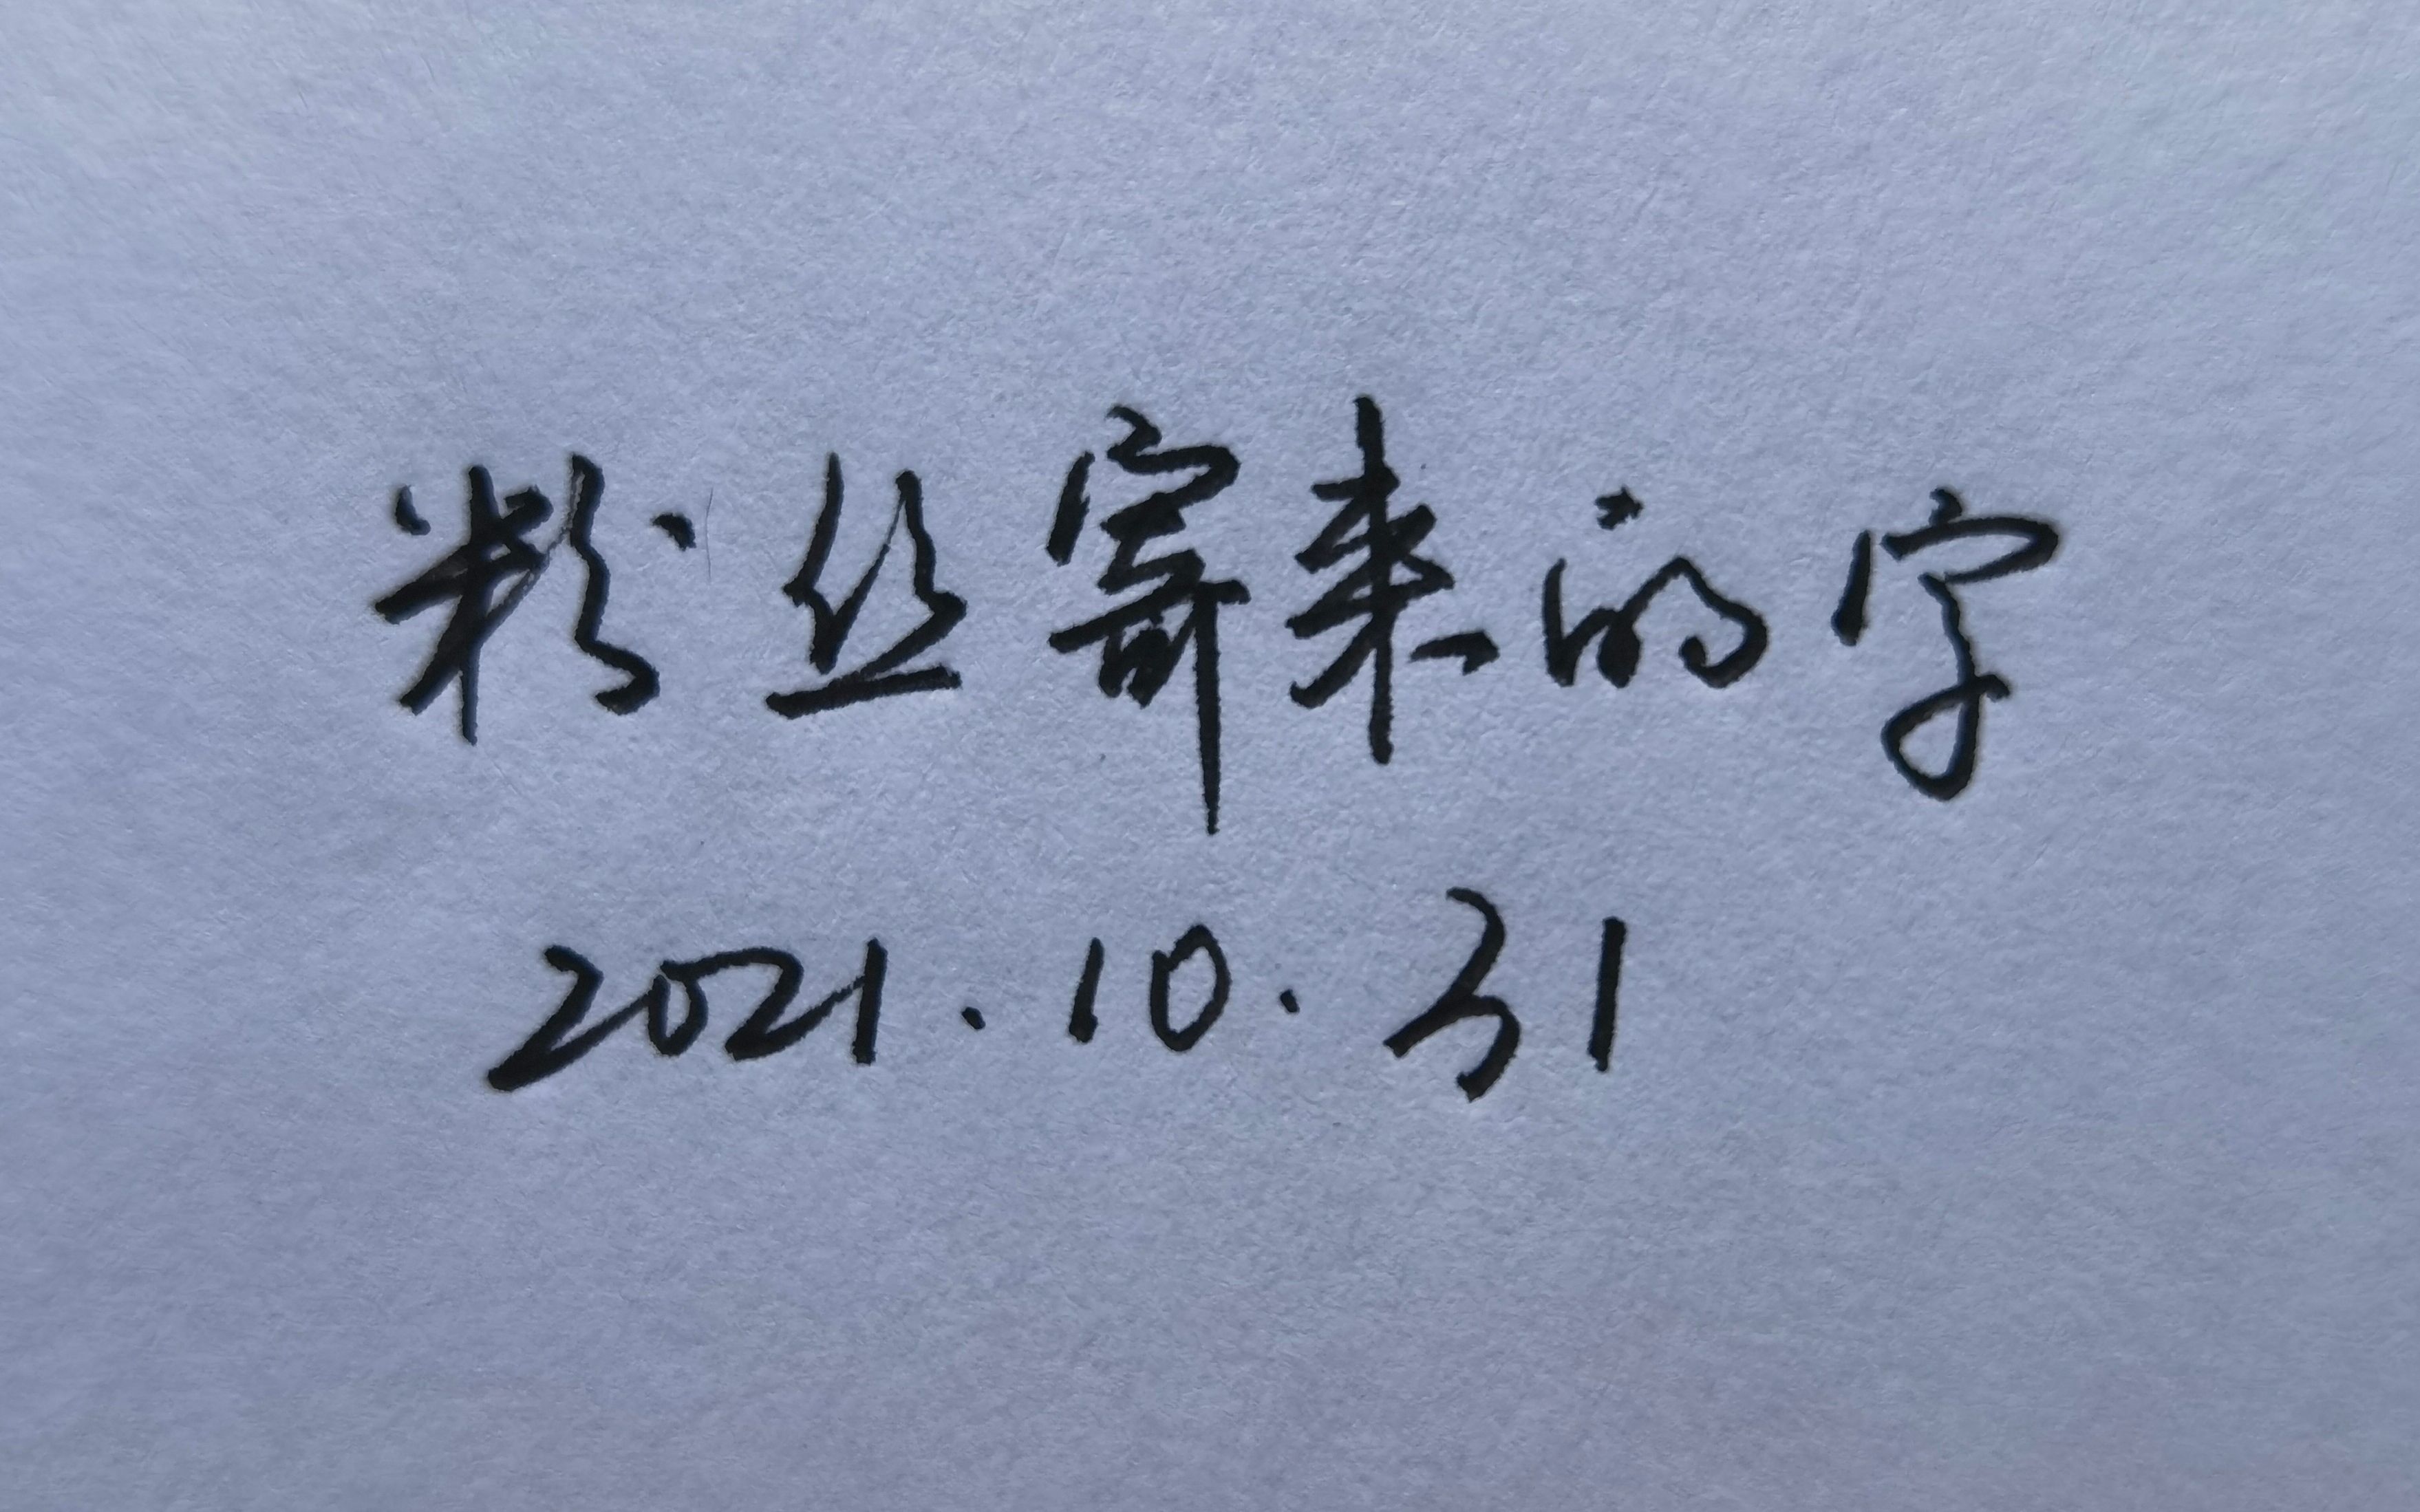 粉丝寄来的字
2021.10.31